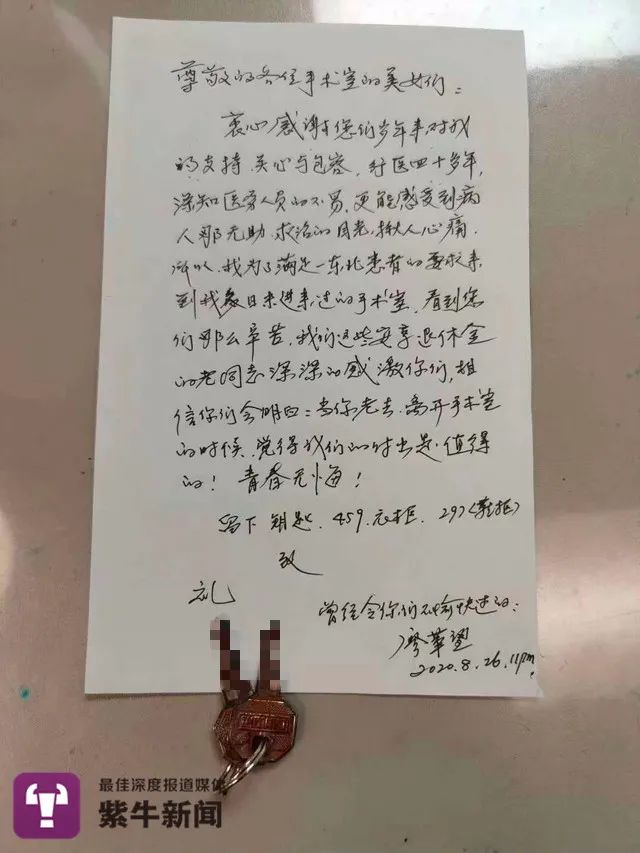 尊敬的各位手术室的美女们：
衷心感谢您们多年来对我
的支持.关心与包容，行医四十多年，
深知医务人员的不易，更能感受到病
人那无助.求治的目光，揪人心痛，
所以，我为了满足一东北患者的要求，来
到我数日未进来过的手术室，看到您
们那么辛苦，我们这些安享退休金
的老同志深深的感激你们，相
信你们会明白：当你老去.离开手术室
的时候，觉得我们的付出是值得
的！青春无悔！
留下钥匙.459.衣柜.297<鞋柜>
致
礼
曾经令你们不愉快过的：
廖华望
2020.8.26.11pm
最佳深度报道媒体
紫牛新闻